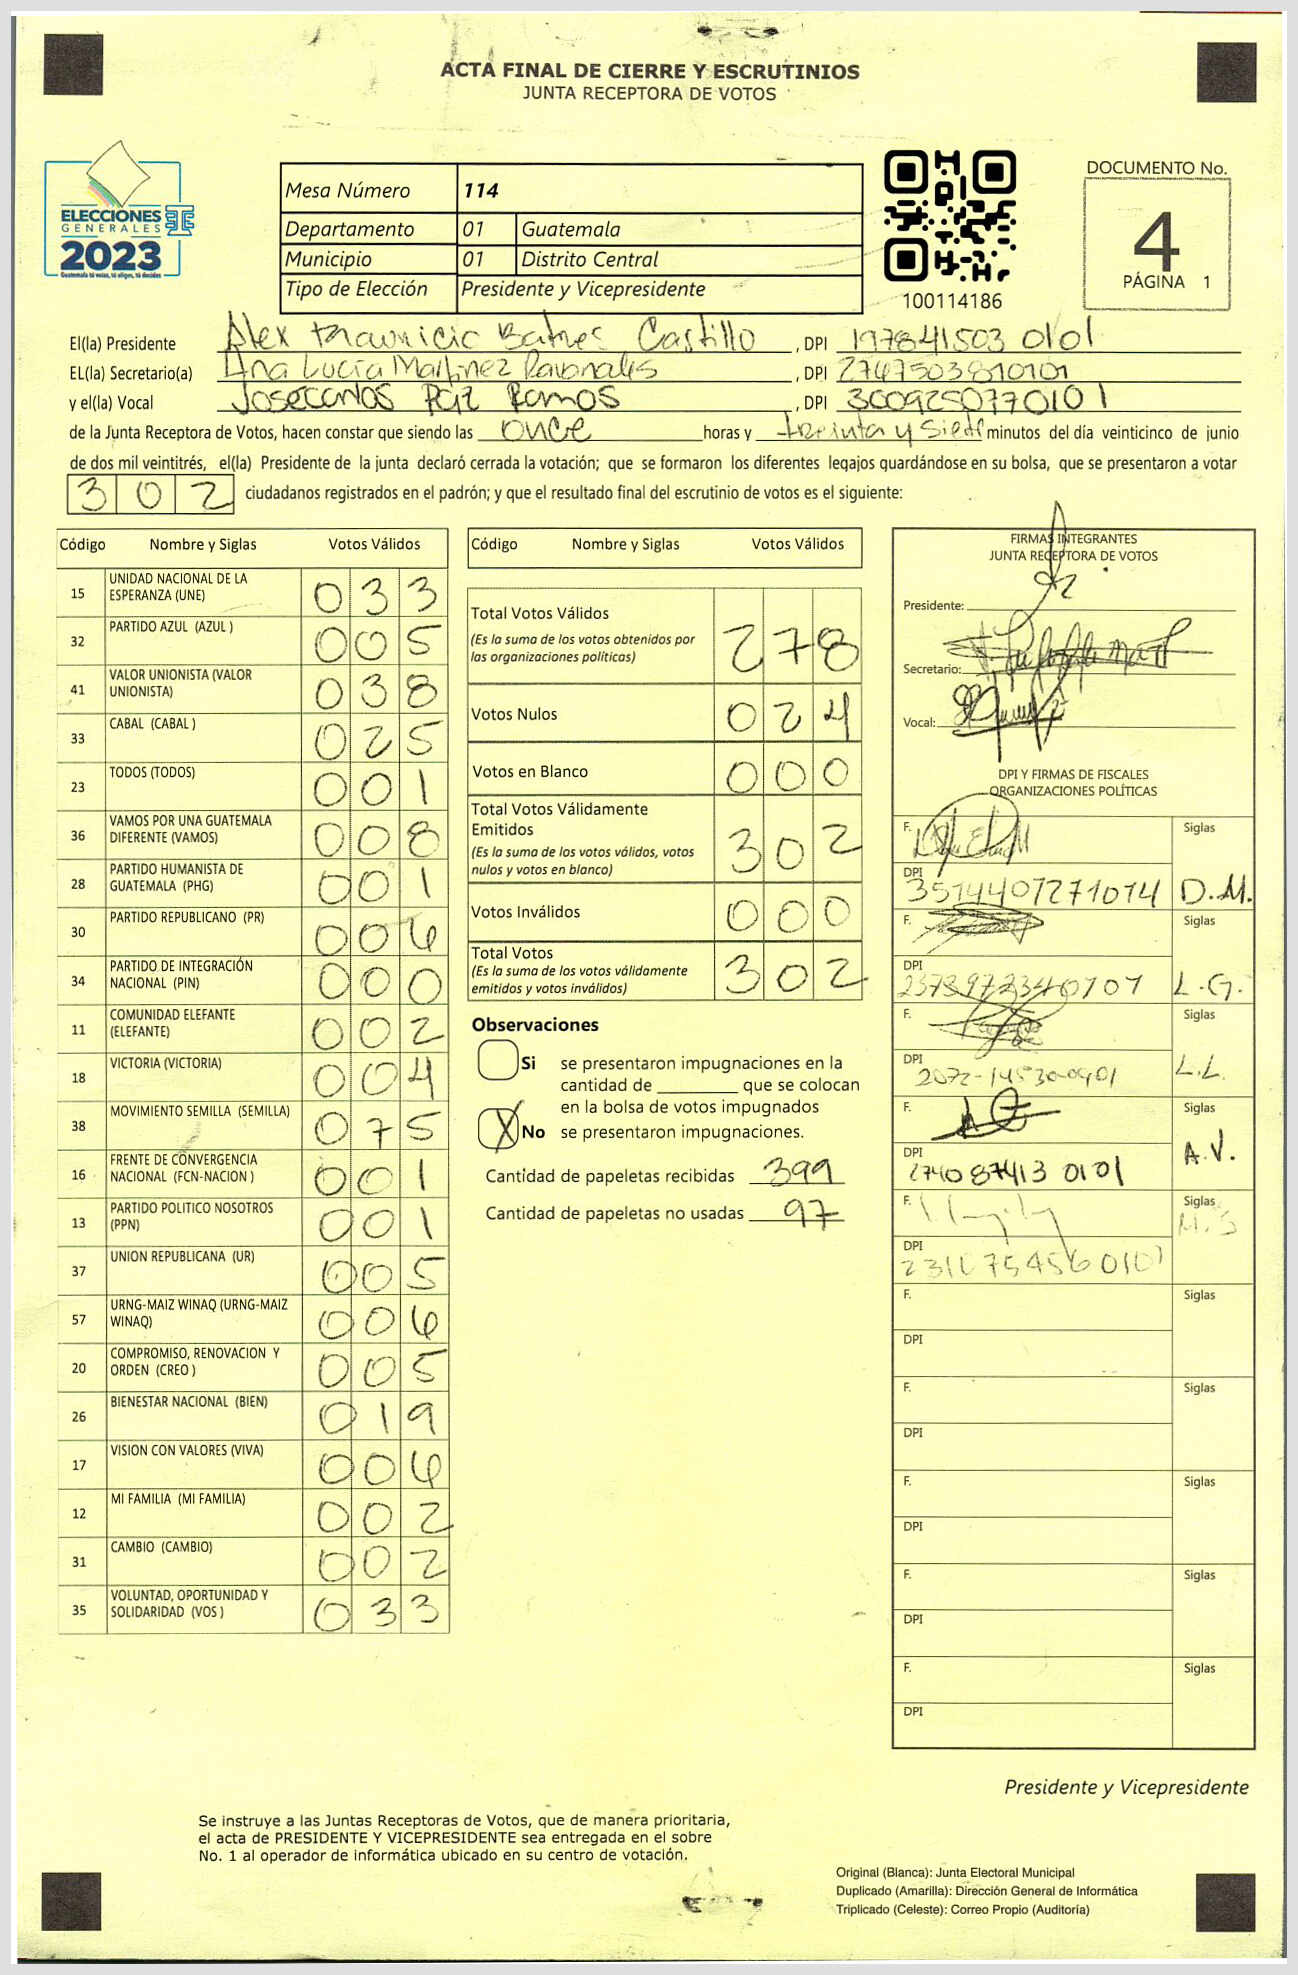 ACTA FINAL DE CIERRE Y ESCRUTINIOS
JUNTA RECEPTORA DE VOTOS
ELECCIONES
GENERALES
2023
Guatemala tú votas, tú eliges, tú decides
Mesa Número 114
Departamento 01 Guatemala
Municipio 01 Distrito Central
Tipo de Elección Presidente y Vicepresidente
100114186
DOCUMENTO No.
4
PÁGINA 1
El(la) Presidente Alex Mauricio Batres Castillo , DPI 197841503 0101
EL(la) Secretario(a) Ana Lucía Martínez , DPI 2747503810101
y el(la) Vocal Josecarlos Paiz Ramos , DPI 3009250770101
de la Junta Receptora de Votos, hacen constar que siendo las once horas y treinta y siete minutos del día veinticinco de junio
de dos mil veintitrés, el(la) Presidente de la junta declaró cerrada la votación; que se formaron los diferentes legajos guardándose en su bolsa, que se presentaron a votar
302 ciudadanos registrados en el padrón; y que el resultado final del escrutinio de votos es el siguiente:
Código Nombre y Siglas Votos Válidos
15 UNIDAD NACIONAL DE LA ESPERANZA (UNE) 033
32 PARTIDO AZUL (AZUL ) 005
41 VALOR UNIONISTA (VALOR UNIONISTA) 038
33 CABAL (CABAL ) 025
23 TODOS (TODOS) 001
36 VAMOS POR UNA GUATEMALA DIFERENTE (VAMOS) 008
28 PARTIDO HUMANISTA DE GUATEMALA (PHG) 001
30 PARTIDO REPUBLICANO (PR) 006
34 PARTIDO DE INTEGRACIÓN NACIONAL (PIN) 000
11 COMUNIDAD ELEFANTE (ELEFANTE) 002
18 VICTORIA (VICTORIA) 004
38 MOVIMIENTO SEMILLA (SEMILLA) 075
16 FRENTE DE CONVERGENCIA NACIONAL (FCN-NACION ) 001
13 PARTIDO POLITICO NOSOTROS (PPN) 001
37 UNION REPUBLICANA (UR) 005
57 URNG-MAIZ WINAQ (URNG-MAIZ WINAQ) 006
20 COMPROMISO, RENOVACION Y ORDEN (CREO ) 005
26 BIENESTAR NACIONAL (BIEN) 019
17 VISION CON VALORES (VIVA) 006
12 MI FAMILIA (MI FAMILIA) 002
31 CAMBIO (CAMBIO) 002
35 VOLUNTAD, OPORTUNIDAD Y SOLIDARIDAD (VOS ) 033
Código Nombre y Siglas Votos Válidos
Total Votos Válidos 278
(Es la suma de los votos obtenidos por
las organizaciones políticas)
Votos Nulos 024
Votos en Blanco 000
Total Votos Válidamente
Emitidos 302
(Es la suma de los votos válidos, votos
nulos y votos en blanco)
Votos Inválidos 000
Total Votos 302
(Es la suma de los votos válidamente
emitidos y votos inválidos)
Observaciones
Si se presentaron impugnaciones en la
cantidad de ________ que se colocan
en la bolsa de votos impugnados
X No se presentaron impugnaciones.
Cantidad de papeletas recibidas 399
Cantidad de papeletas no usadas 97
FIRMAS INTEGRANTES
JUNTA RECEPTORA DE VOTOS
Presidente:
Secretario:
Vocal:
DPI Y FIRMAS DE FISCALES
ORGANIZACIONES POLÍTICAS
F. Siglas
DPI 3514407271014 D.M.
F. Siglas
DPI L.G.
F. Siglas
DPI 2072-14530-0901 L.L.
F. Siglas
DPI 274087413 0101 A.V.
F. Siglas
DPI 2310754560101 M.S
F. Siglas
DPI
F. Siglas
DPI
F. Siglas
DPI
F. Siglas
DPI
F. Siglas
DPI
Presidente y Vicepresidente
Se instruye a las Juntas Receptoras de Votos, que de manera prioritaria,
el acta de PRESIDENTE Y VICEPRESIDENTE sea entregada en el sobre
No. 1 al operador de informática ubicado en su centro de votación.
Original (Blanca): Junta Electoral Municipal
Duplicado (Amarilla): Dirección General de Informática
Triplicado (Celeste): Correo Propio (Auditoría)